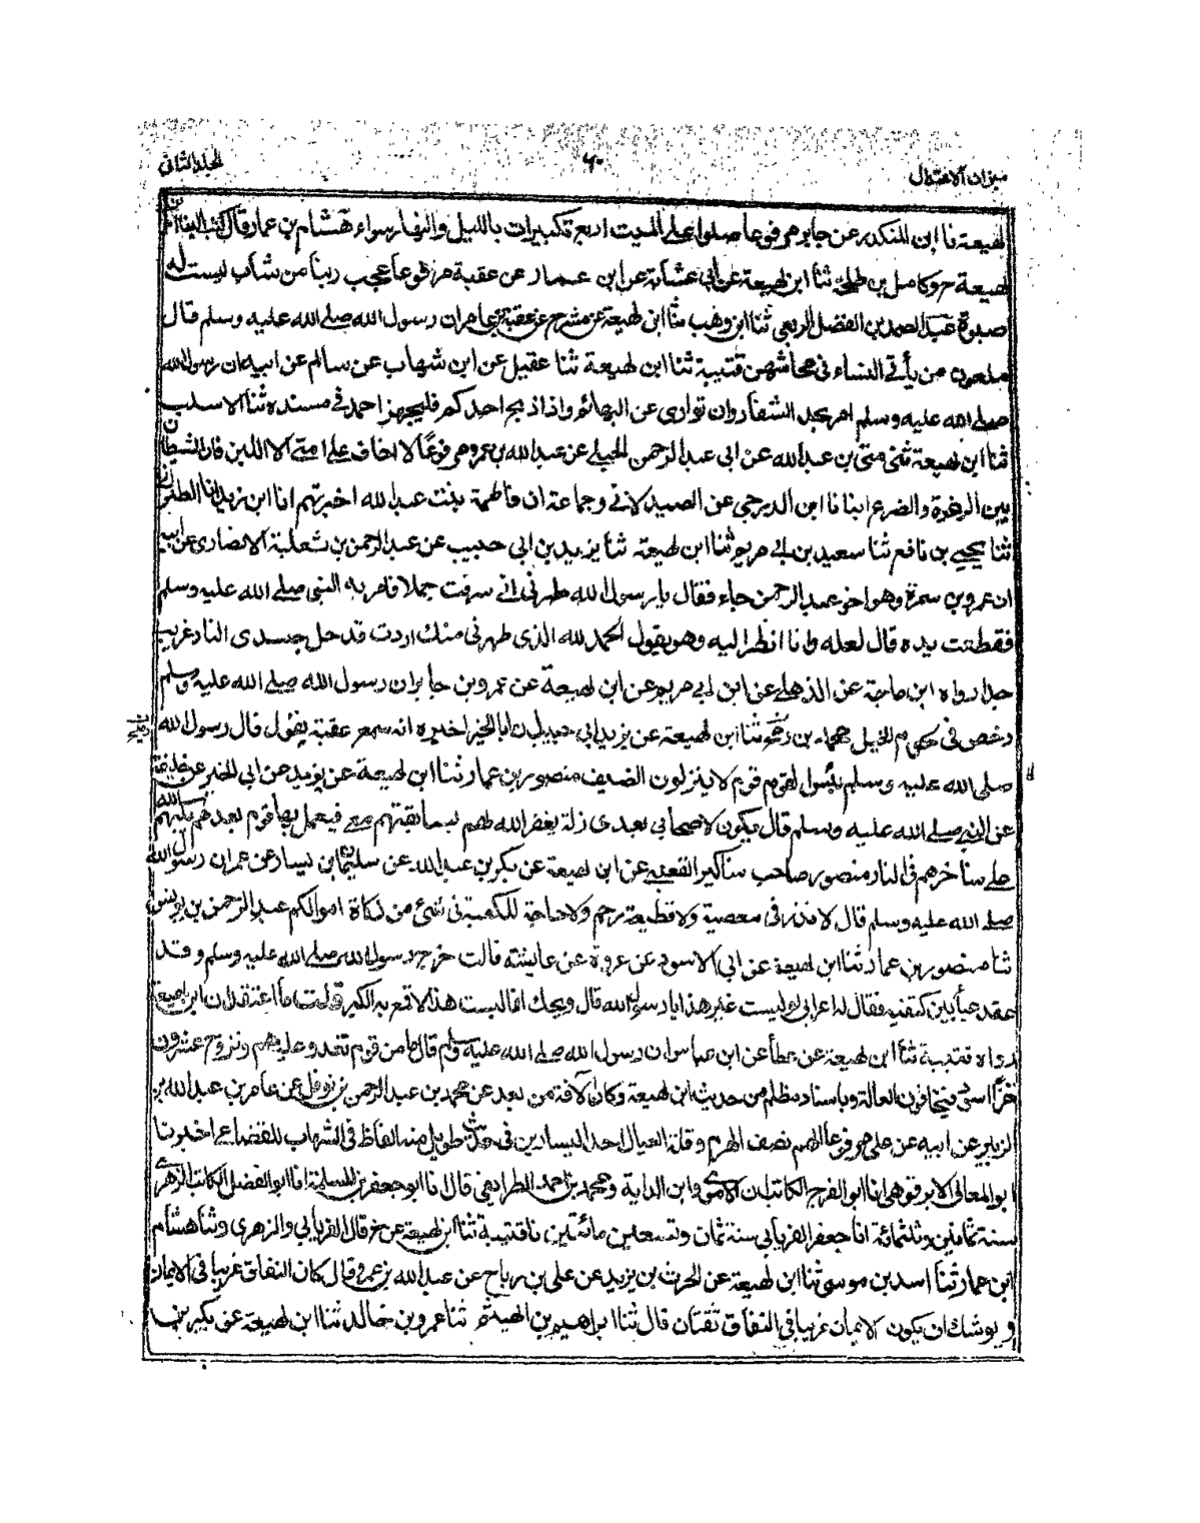 ميزان الاعتدال
٦٠
المجلد الثاني
لهيعة نا ابن المنكدر عن جابر مرفوعا صلوا على الميت اربع تكبيرات بالليل والنهار سواء هشام بن عمار قال كتب الينا ابن
لهيعة ح وكامل بن طلحة ثنا ابن لهيعة عن ابي عشانة عن ابن عمار عن عقبة مرفوعا عجب ربنا من شاب ليست له
صبوة عبد الصمد بن الفضل الربعي ثنا ابن وهب ثنا ابن لهيعة عن مشرح عن عقبة بن عامر ان رسول الله صلى الله عليه وسلم قال
ملعون من يأتي النساء في محاشهن قتيبة ثنا ابن لهيعة ثنا عقيل عن ابن شهاب عن سالم عن ابيه ان رسول الله
صلى الله عليه وسلم امر بحد الشفار وان توارى عن البهائم واذا ذبح احدكم فليجهز احمد في مسنده ثنا الاسلب
ثنا ابن لهيعة ثني حتى بن عبد الله عن ابي عبد الرحمن الحبلي عن عبد الله بن عمرو مرفوعا لا اخاف على امتي الا اللبن فان الشيطان
بين الرغوة والضرع انبانا ابن الدرجي عن الصيدلاني وجماعة ان فاطمة بنت عبد الله اخبرتهم انا ابن زيد انا الطبراني
ثنا يحيى بن نافع ثنا سعيد بن ابي مريم ثنا ابن لهيعة ثنا يزيد بن ابي حبيب عن عبد الرحمن بن ثعلبة الانصاري عن ابيه
ان عمرو بن سمرة وهو اخو عبد الرحمن جاء فقال يا رسول الله طهرني اني سرقت جملا فامر به النبي صلى الله عليه وسلم
فقطعت يده قال لعله وانا انظر اليه وهو يقول الحمد لله الذي طهرني منك اردت قد حل جسدي النار غريب
جدا رواه ابن ماجة عن الذهلي عن ابن ابي مريم عن ابن لهيعة عن عمرو بن جابر ان رسول الله صلى الله عليه وسلم
رخص في لحوم الخيل محمد بن رمح ثنا ابن لهيعة عن يزيد بن ابي حبيب ان ابا الخير اخبره انه سمع عقبة يقول قال رسول الله
صلى الله عليه وسلم بئس القوم قوم لا ينزلون الضيف منصور بن عمار ثنا ابن لهيعة عن يزيد عن ابي الخير عن حذيفة
عن النبي صلى الله عليه وسلم قال يكون لاصحابي بعدي زلة يغفر الله لهم بسابقتهم معي فيعمل بها قوم بعدهم يكبهم الله
على مناخرهم في النار منصور صاحب مناكير القعنبي عن ابن لهيعة عن بكر بن عبد الله عن سليمان بن يسار عن عمران رسول الله
صلى الله عليه وسلم قال لا نذر في معصية ولا قطيعة رحم ولا حاجة للكعبة في شيء من زكاة اموالكم عبد الرحمن بن يونس
ثنا منصور بن عمار ثنا ابن لهيعة عن ابي الاسود عن عروة عن عائشة قالت خرج رسول الله صلى الله عليه وسلم وقد
عقد عباء بين كتفيه فقال له اعرابي لو لبست غير هذا يا رسول الله قال ويحك انما لبست هذا لاقمع به الكبر قلت ما اعتقد ان ابن لهيعة
رواه قتيبة ثنا ابن لهيعة عن عطاء عن ابن عباس ان رسول الله صلى الله عليه وسلم قال ما من قوم تغدو عليهم وتروح عشرون
عنزا اسود فيخافون العالة وباسناد مظلم من حديث ابن لهيعة وكان الآفة من بعد عن محمد بن عبد الرحمن بن نوفل عن عامر بن عبد الله بن
الزبير عن ابيه عن علي مرفوعا الهم نصف الهرم وقلة العيال احد اليسارين في حديث طويل منه الفاظ في الشهاب للقضاعي اخبرنا
ابو المعالي الابرقوهي انا ابو الفرج الكاتب ابن الاموي وابن الداية ومحمد بن احمد الطرايفي قال انا ابو جعفر بن المسلمة انا ابو الفضل الكاتب الزهري
سنة ثمانين وثلثمائة انا جعفر الفريابي سنة ثمان وتسعين مائتين نا قتيبة ثنا ابن لهيعة عن ح قال الفريابي والزهري وثنا هشام
ابن عمار ثنا اسد بن موسى ثنا ابن لهيعة عن الحرث بن يزيد عن علي بن رباح عن عبد الله بن عمرو قال كان النفاق غريبا في الايمان
ويوشك ان يكون الايمان غريبا في النفاق ثقتان قال ثنا ابراهيم بن الهيثم ثنا عمرو بن خالد ثنا ابن لهيعة عن بكير بن